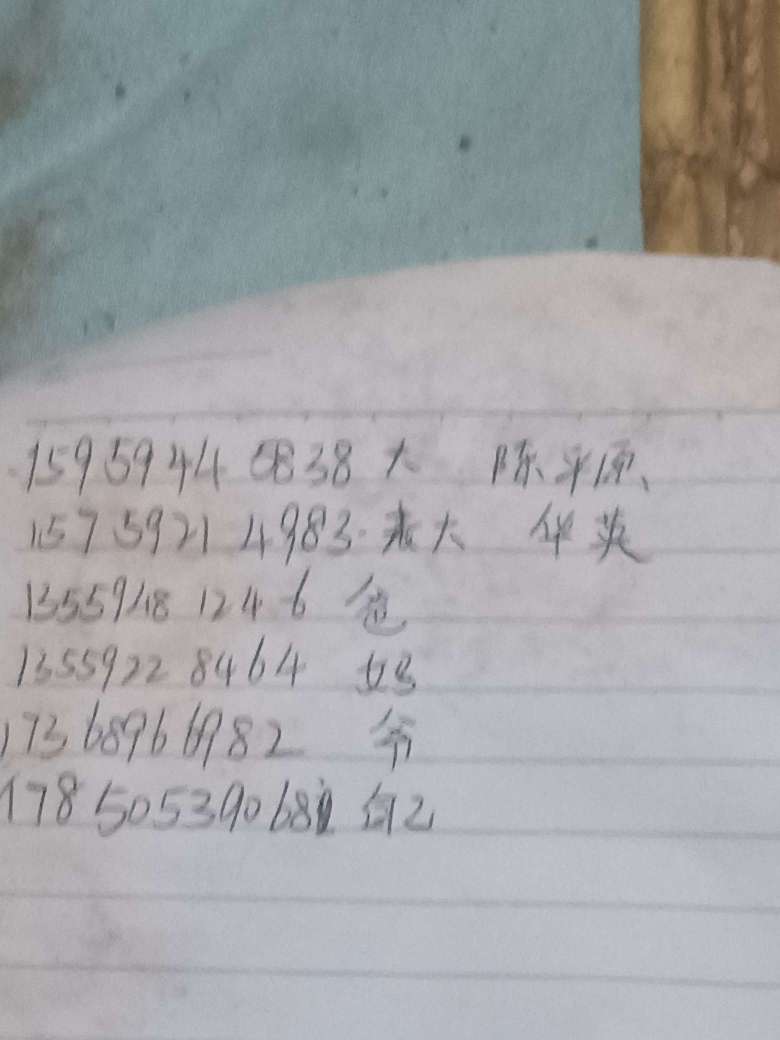 15959444 5838 大 陈平原、
157592114983. 老大 华英
13559481246 爸
13559228464 妈
17368966982 爷
17850539068 自己